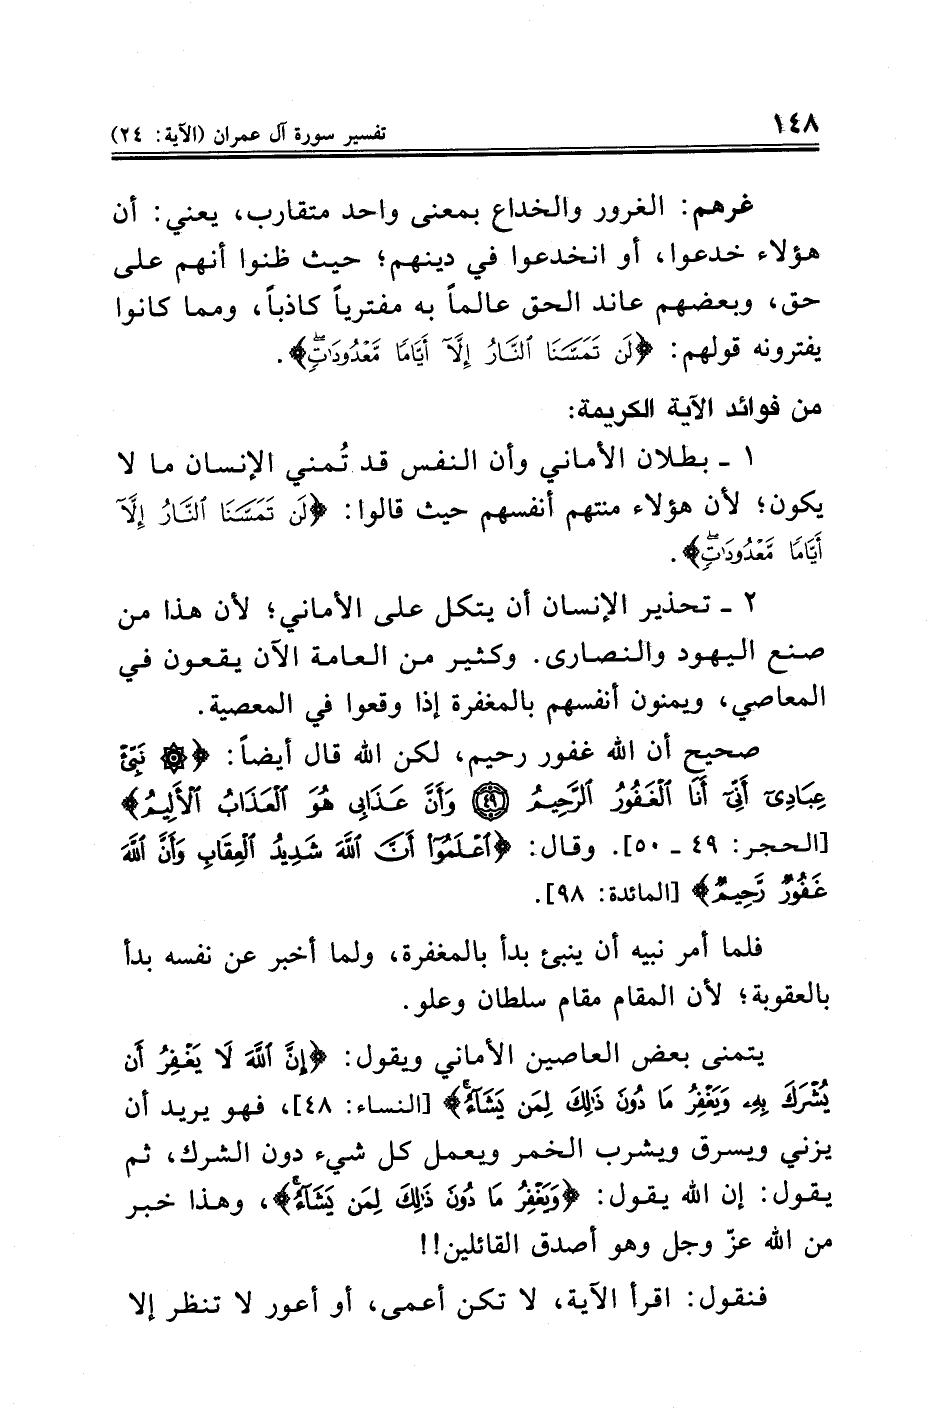 ١٤٨ تفسير سورة آل عمران (الآية: ٢٤)
غرهم: الغرور والخداع بمعنى واحد متقارب، يعني: أن
هؤلاء خدعوا، أو انخدعوا في دينهم؛ حيث ظنوا أنهم على
حق، وبعضهم عاند الحق عالماً به مفترياً كاذباً، ومما كانوا
يفترونه قولهم: ﴿لَن تَمَسَّنَا ٱلنَّارُ إِلَّآ أَيَّامًا مَّعْدُودَٰتٍۖ﴾.
من فوائد الآية الكريمة:
١ ـ بطلان الأماني وأن النفس قد تُمني الإنسان ما لا
يكون؛ لأن هؤلاء منتهم أنفسهم حيث قالوا: ﴿لَن تَمَسَّنَا ٱلنَّارُ إِلَّآ
أَيَّامًا مَّعْدُودَٰتٍۖ﴾.
٢ ـ تحذير الإنسان أن يتكل على الأماني؛ لأن هذا من
صنع اليهود والنصارى. وكثير من العامة الآن يقعون في
المعاصي، ويمنون أنفسهم بالمغفرة إذا وقعوا في المعصية.
صحيح أن الله غفور رحيم، لكن الله قال أيضاً: ﴿۞ نَبِّئْ
عِبَادِىٓ أَنِّىٓ أَنَا ٱلْغَفُورُ ٱلرَّحِيمُ ۝٤٩ وَأَنَّ عَذَابِى هُوَ ٱلْعَذَابُ ٱلْأَلِيمُ﴾
[الحجر: ٤٩ ـ ٥٠]. وقال: ﴿ٱعْلَمُوٓا۟ أَنَّ ٱللَّهَ شَدِيدُ ٱلْعِقَابِ وَأَنَّ ٱللَّهَ
غَفُورٌ رَّحِيمٌ﴾ [المائدة: ٩٨].
فلما أمر نبيه أن ينبئ بدأ بالمغفرة، ولما أخبر عن نفسه بدأ
بالعقوبة؛ لأن المقام مقام سلطان وعلو.
يتمنى بعض العاصين الأماني ويقول: ﴿إِنَّ ٱللَّهَ لَا يَغْفِرُ أَن
يُشْرَكَ بِهِۦ وَيَغْفِرُ مَا دُونَ ذَٰلِكَ لِمَن يَشَآءُۚ﴾ [النساء: ٤٨]، فهو يريد أن
يزني ويسرق ويشرب الخمر ويعمل كل شيء دون الشرك، ثم
يقول: إن الله يقول: ﴿وَيَغْفِرُ مَا دُونَ ذَٰلِكَ لِمَن يَشَآءُۚ﴾، وهذا خبر
من الله عزّ وجل وهو أصدق القائلين!!
فنقول: اقرأ الآية، لا تكن أعمى، أو أعور لا تنظر إلا